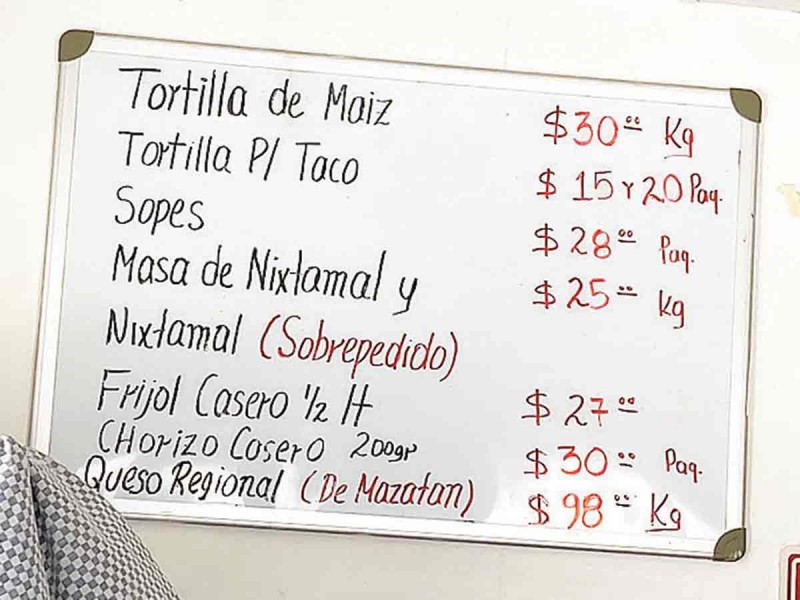 Tortilla de Maiz $30.00 Kg
Tortilla P/ Taco $ 15 Y 20 Paq.
Sopes $ 28.00 Paq.
Masa de Nixtamal y $ 25.00 kg
Nixtamal (Sobrepedido)
Frijol Casero 1/2 lt $ 27.00
CHorizo Casero 200gr $ 30.00 Paq.
Queso Regional (De Mazatan) $ 98.00 Kg